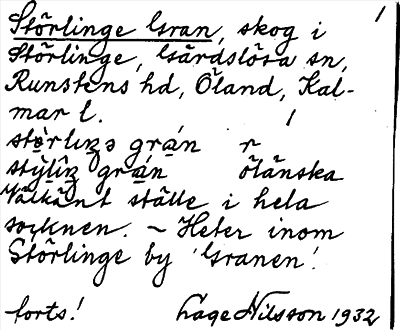 Störlinge Gran, skog i 1
Störlinge, Gärdslösa sn,
Runstens hd, Öland, Kal-
mar l. 1
r
ölänska
Välkänt ställe i hela
socknen. ~ Heter inom
Störlinge by 'Granen'.
forts! Låge Nilsson 1932